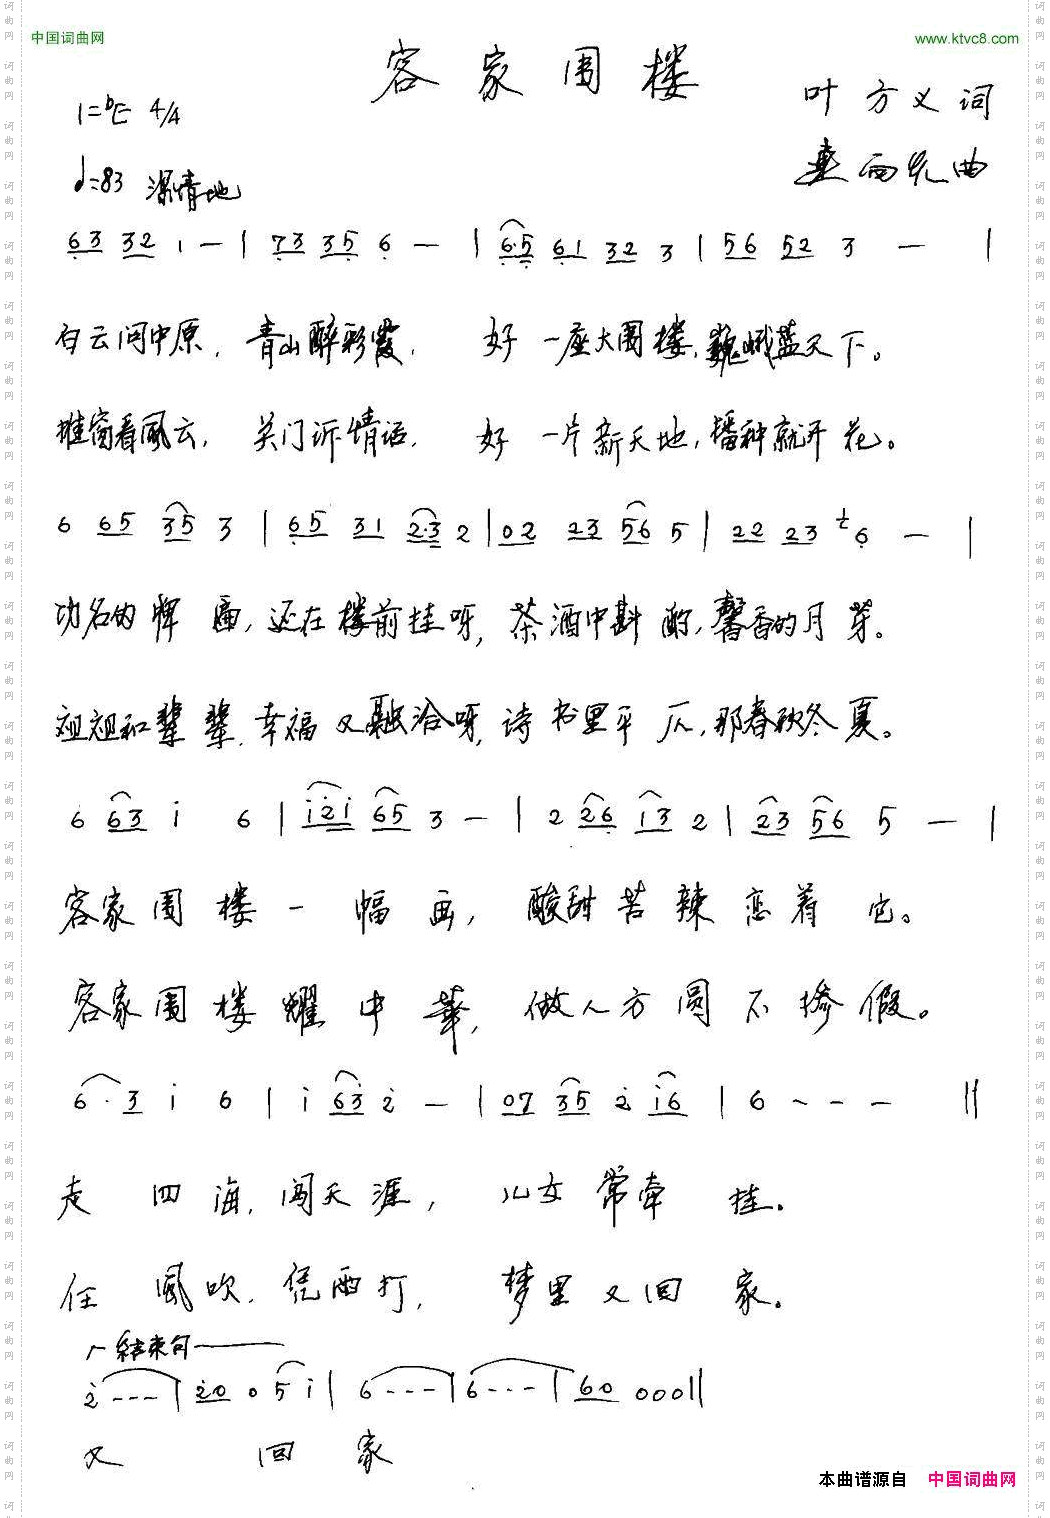 中国词曲网
www.ktvc8.com
客家围楼
1=bE 4/4
叶方义词
♩=83 深情地
雨 曲
63 32 1 — | 73 35 6 — | 6·5 61 32 3 | 56 52 3 — |
白云问中原，青山醉彩霞， 好一座大围楼，巍峨蓝天下。
推窗看风云， 关门诉情话， 好一片新天地，播种就开花。
6 65 35 3 | 65 31 2·3 2 | 02 23 56 5 | 22 23 6 — |
功名的牌匾，还在楼前挂呀，茶酒中斟酌，馨香的月芽。
祖祖和辈辈，幸福又融洽呀，诗书里平仄，那春秋冬夏。
6 63 i 6 | i2i 65 3 — | 2 26 13 2 | 23 56 5 — |
客家围楼一幅画，酸甜苦辣恋着它。
客家围楼耀中华，做人方圆不掺假。
6·3 i 6 | i 63 2 — | 07 35 2 i6 | 6 - - - ‖
走四海，闯天涯，儿女常牵挂。
任风吹，凭雨打，梦里又回家。
结束句
2 - - - | 20 0 5 i | 6 - - - | 6 - - - | 60 000 ‖
又 回 家
本曲谱源自 中国词曲网